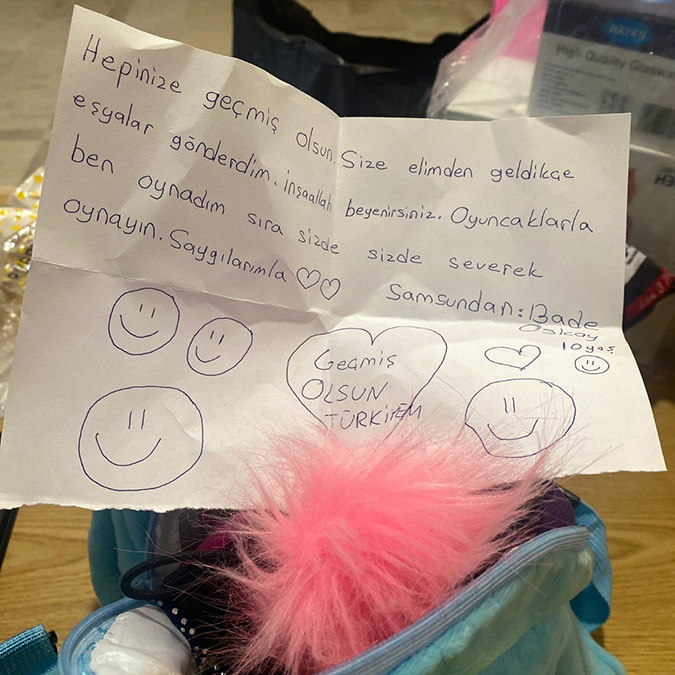 Hepinize geçmiş olsun. Size elimden geldikçe
eşyalar gönderdim. İnşaallah beyenirsiniz. Oyuncaklarla
ben oynadım sıra sizde sizde severek
oynayın. Saygılarımla ♡♡
Samsundan: Bade
Oskay
10 yaş
Geçmiş
OLSUN
TÜRKİYEM
HAYAN
High Quality Glassw